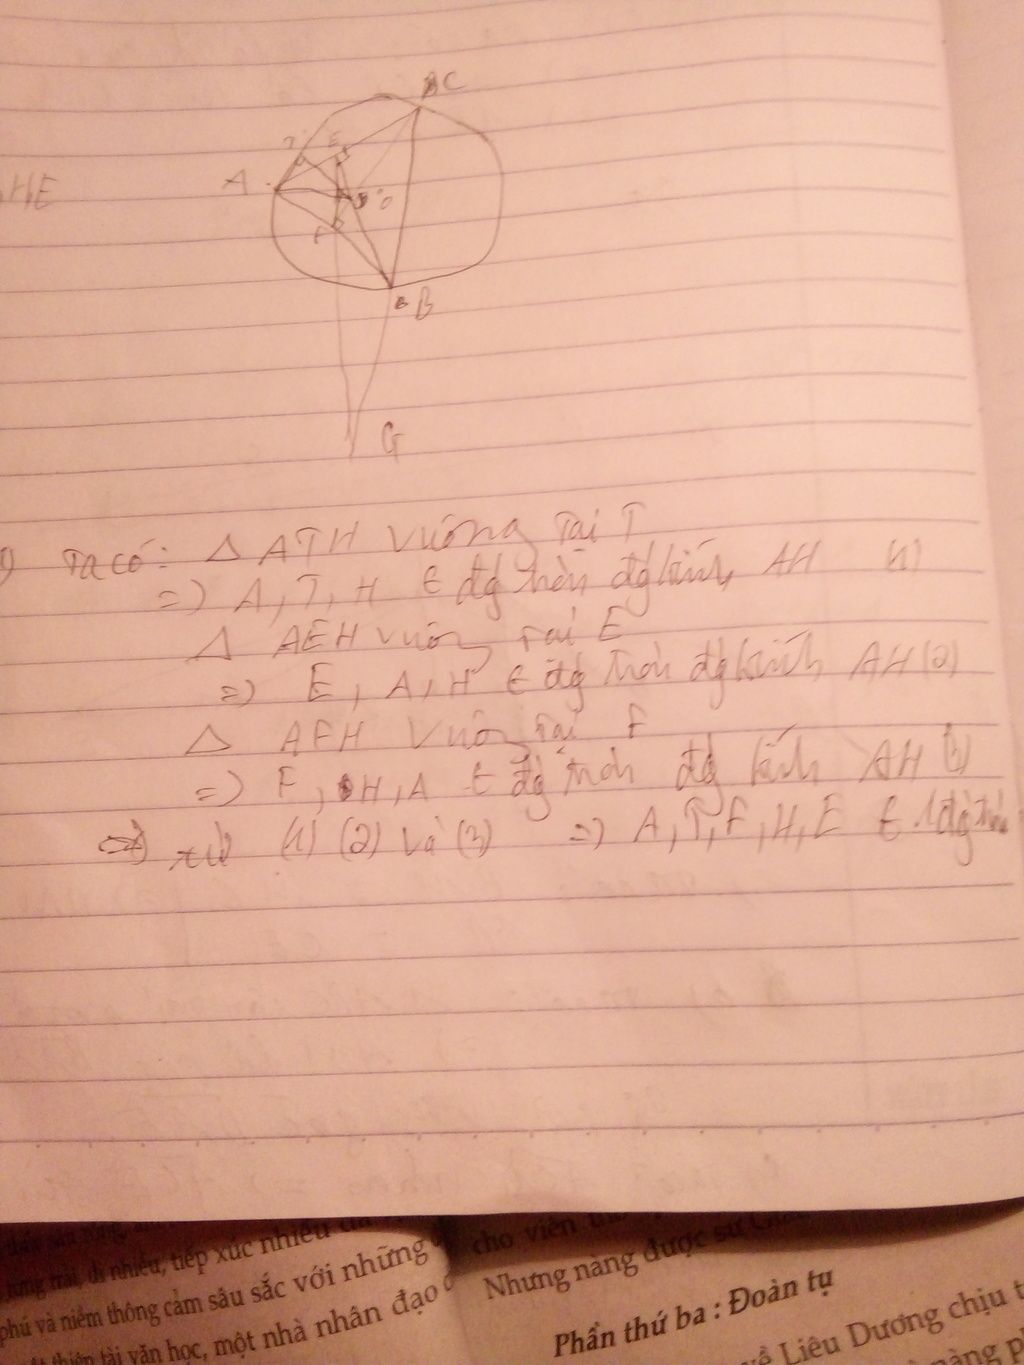 HE
C
T
E
A
O
F
B
G
Ta có: Δ ATH vuông tại T
=> A, T, H ∈ đg tròn đg kính AH (1)
Δ AEH vuông tại E
=> E, A, H ∈ đg tròn đg kính AH (2)
Δ AFH vuông tại F
=> F, H, A ∈ đg tròn đg kính AH (3)
từ (1) (2) và (3) => A, T, F, H, E ∈ 1 đg tròn
phú và niềm thông cảm sâu sắc với những
thiên tài văn học, một nhà nhân đạo
cho viên
Nhưng nàng được sư
Phần thứ ba : Đoàn tụ
về Liêu Dương chịu